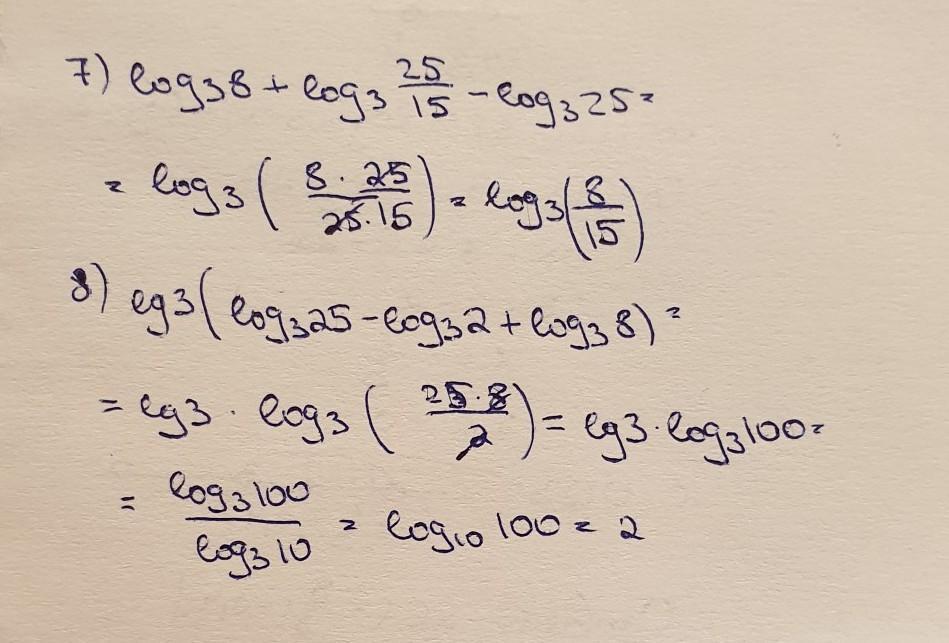 7) log₃8 + log₃ 25/15 - log₃25 =
= log₃( 8 · 25 / 25 · 15 ) = log₃(8/15)
8) lg3( log₃25 - log₃2 + log₃8 ) =
= lg3 · log₃( 25 · 8 / 2 ) = lg3 · log₃100 =
= log₃100 / log₃10 = log₁₀ 100 = 2